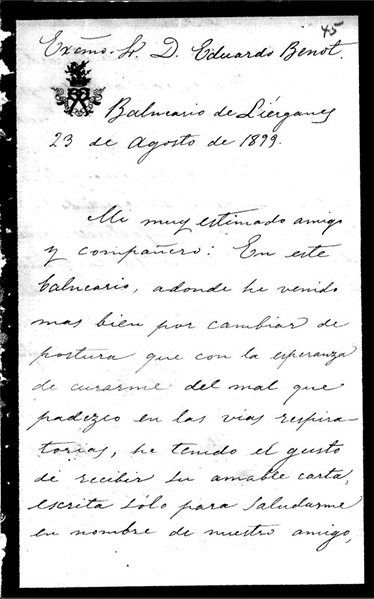 45
Exćmo. Sr. D. Eduardo Benot.
Balneario de Liérganes
23 de Agosto de 1899.
Mi muy estimado amigo
y compañero: En este
balneario, adonde he venido
mas bien por cambiar de
postura que con la esperanza
de curarme del mal que
padezco en las vias respira-
torias, he tenido el gusto
de recibir su amable carta,
escrita sólo para saludarme
en nombre de nuestro amigo,